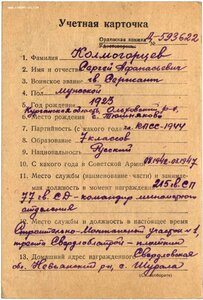 Учетная карточка
А-593622
1. Фамилия Колмогорцев
2. Имя и отчество Сергей Афанасьевич
3. Воинское звание гв. Сержант
4. Пол мужской
5. Год рождения 1923
6. Место рождения
7. Партийность (с какого года) КПСС-1944
8. Образование 7 классов
9. Национальность Русский
10. С какого года в Советской Армии
11. Место службы (наименование части) и занимаемая
должность в момент награждения 215 гв. СП
77 гв. СД - командир минометного
отделения
12. Место службы и должность в настоящее время
Строительно-Монтажный участок №1,
13. Домашний адрес награжденного Свердловская
обл. Невьянский р-н, с. Шурала